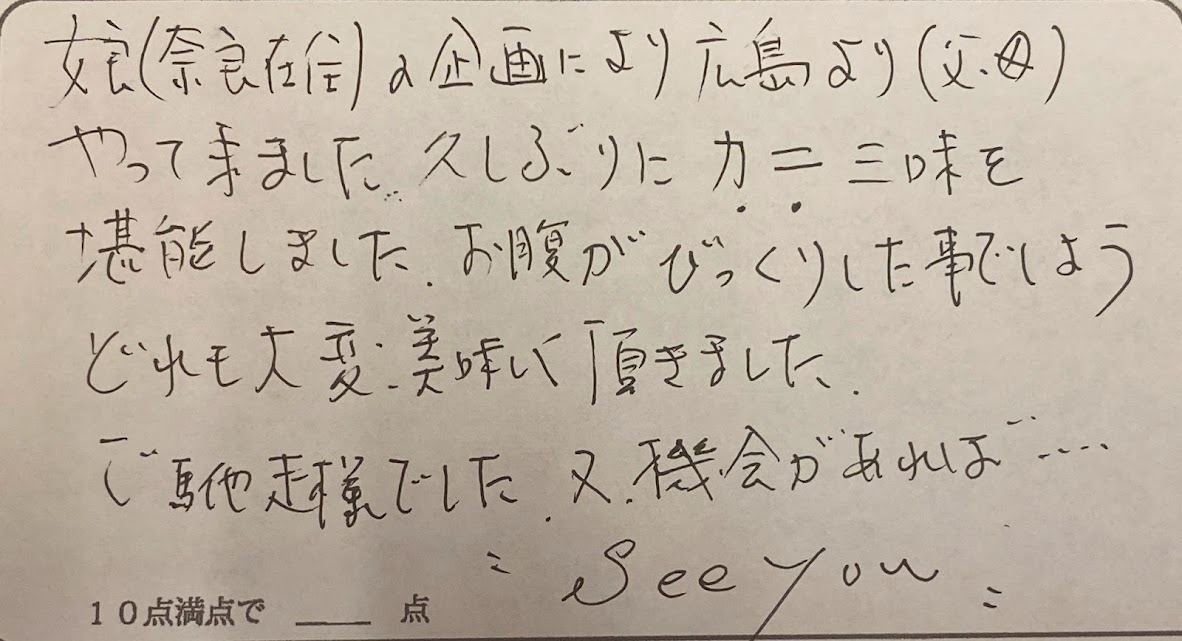 娘(奈良在住)の企画により広島より(父、母)
やって来ました。久しぶりにカニ三味を
堪能しました。お腹がびっくりした事でしょう
どれも大変美味しく頂きました。
ご馳走様でした。又、機会があれば....
"See you"
10点満点で ____ 点